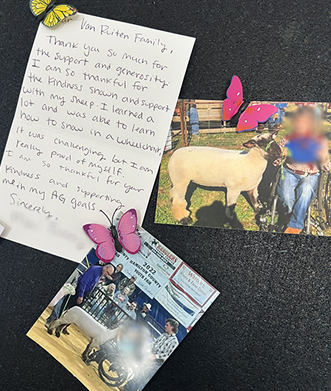 Van Ruiten Family,
Thank you so much for
the support and generosity.
I am so thankful for
the kindness shown and support
with my sheep. I learned a
lot and was able to learn
how to show in a wheelchair
it was challenging but I am
really proud of myself.
I am so thankful for your
kindness and supporting
me in my AG goals
Sincerely,
2022